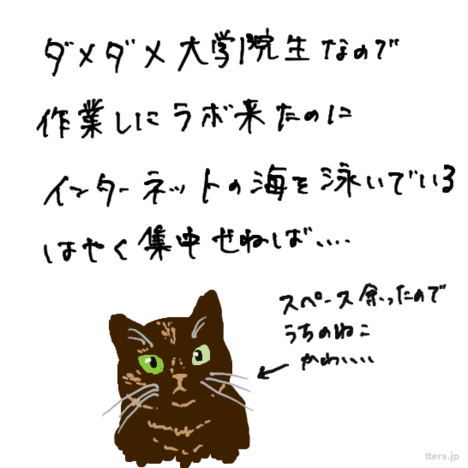 ダメダメ大学院生なので
作業しにラボ来たのに
インターネットの海を泳いでいる
はやく集中せねば....
スペース余ったので
うちのねこ
かわいい
tters.jp